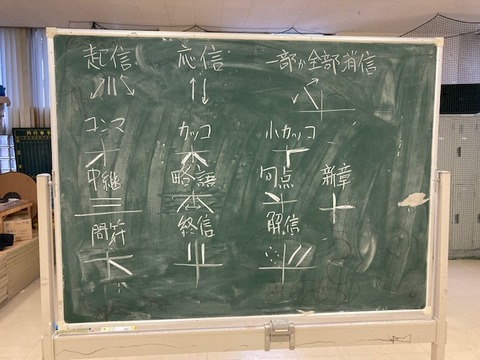 起信 応信 一部か全部消信
コンマ カッコ 小カッコ
中継 略語 句点 新章
問符 終信 解信